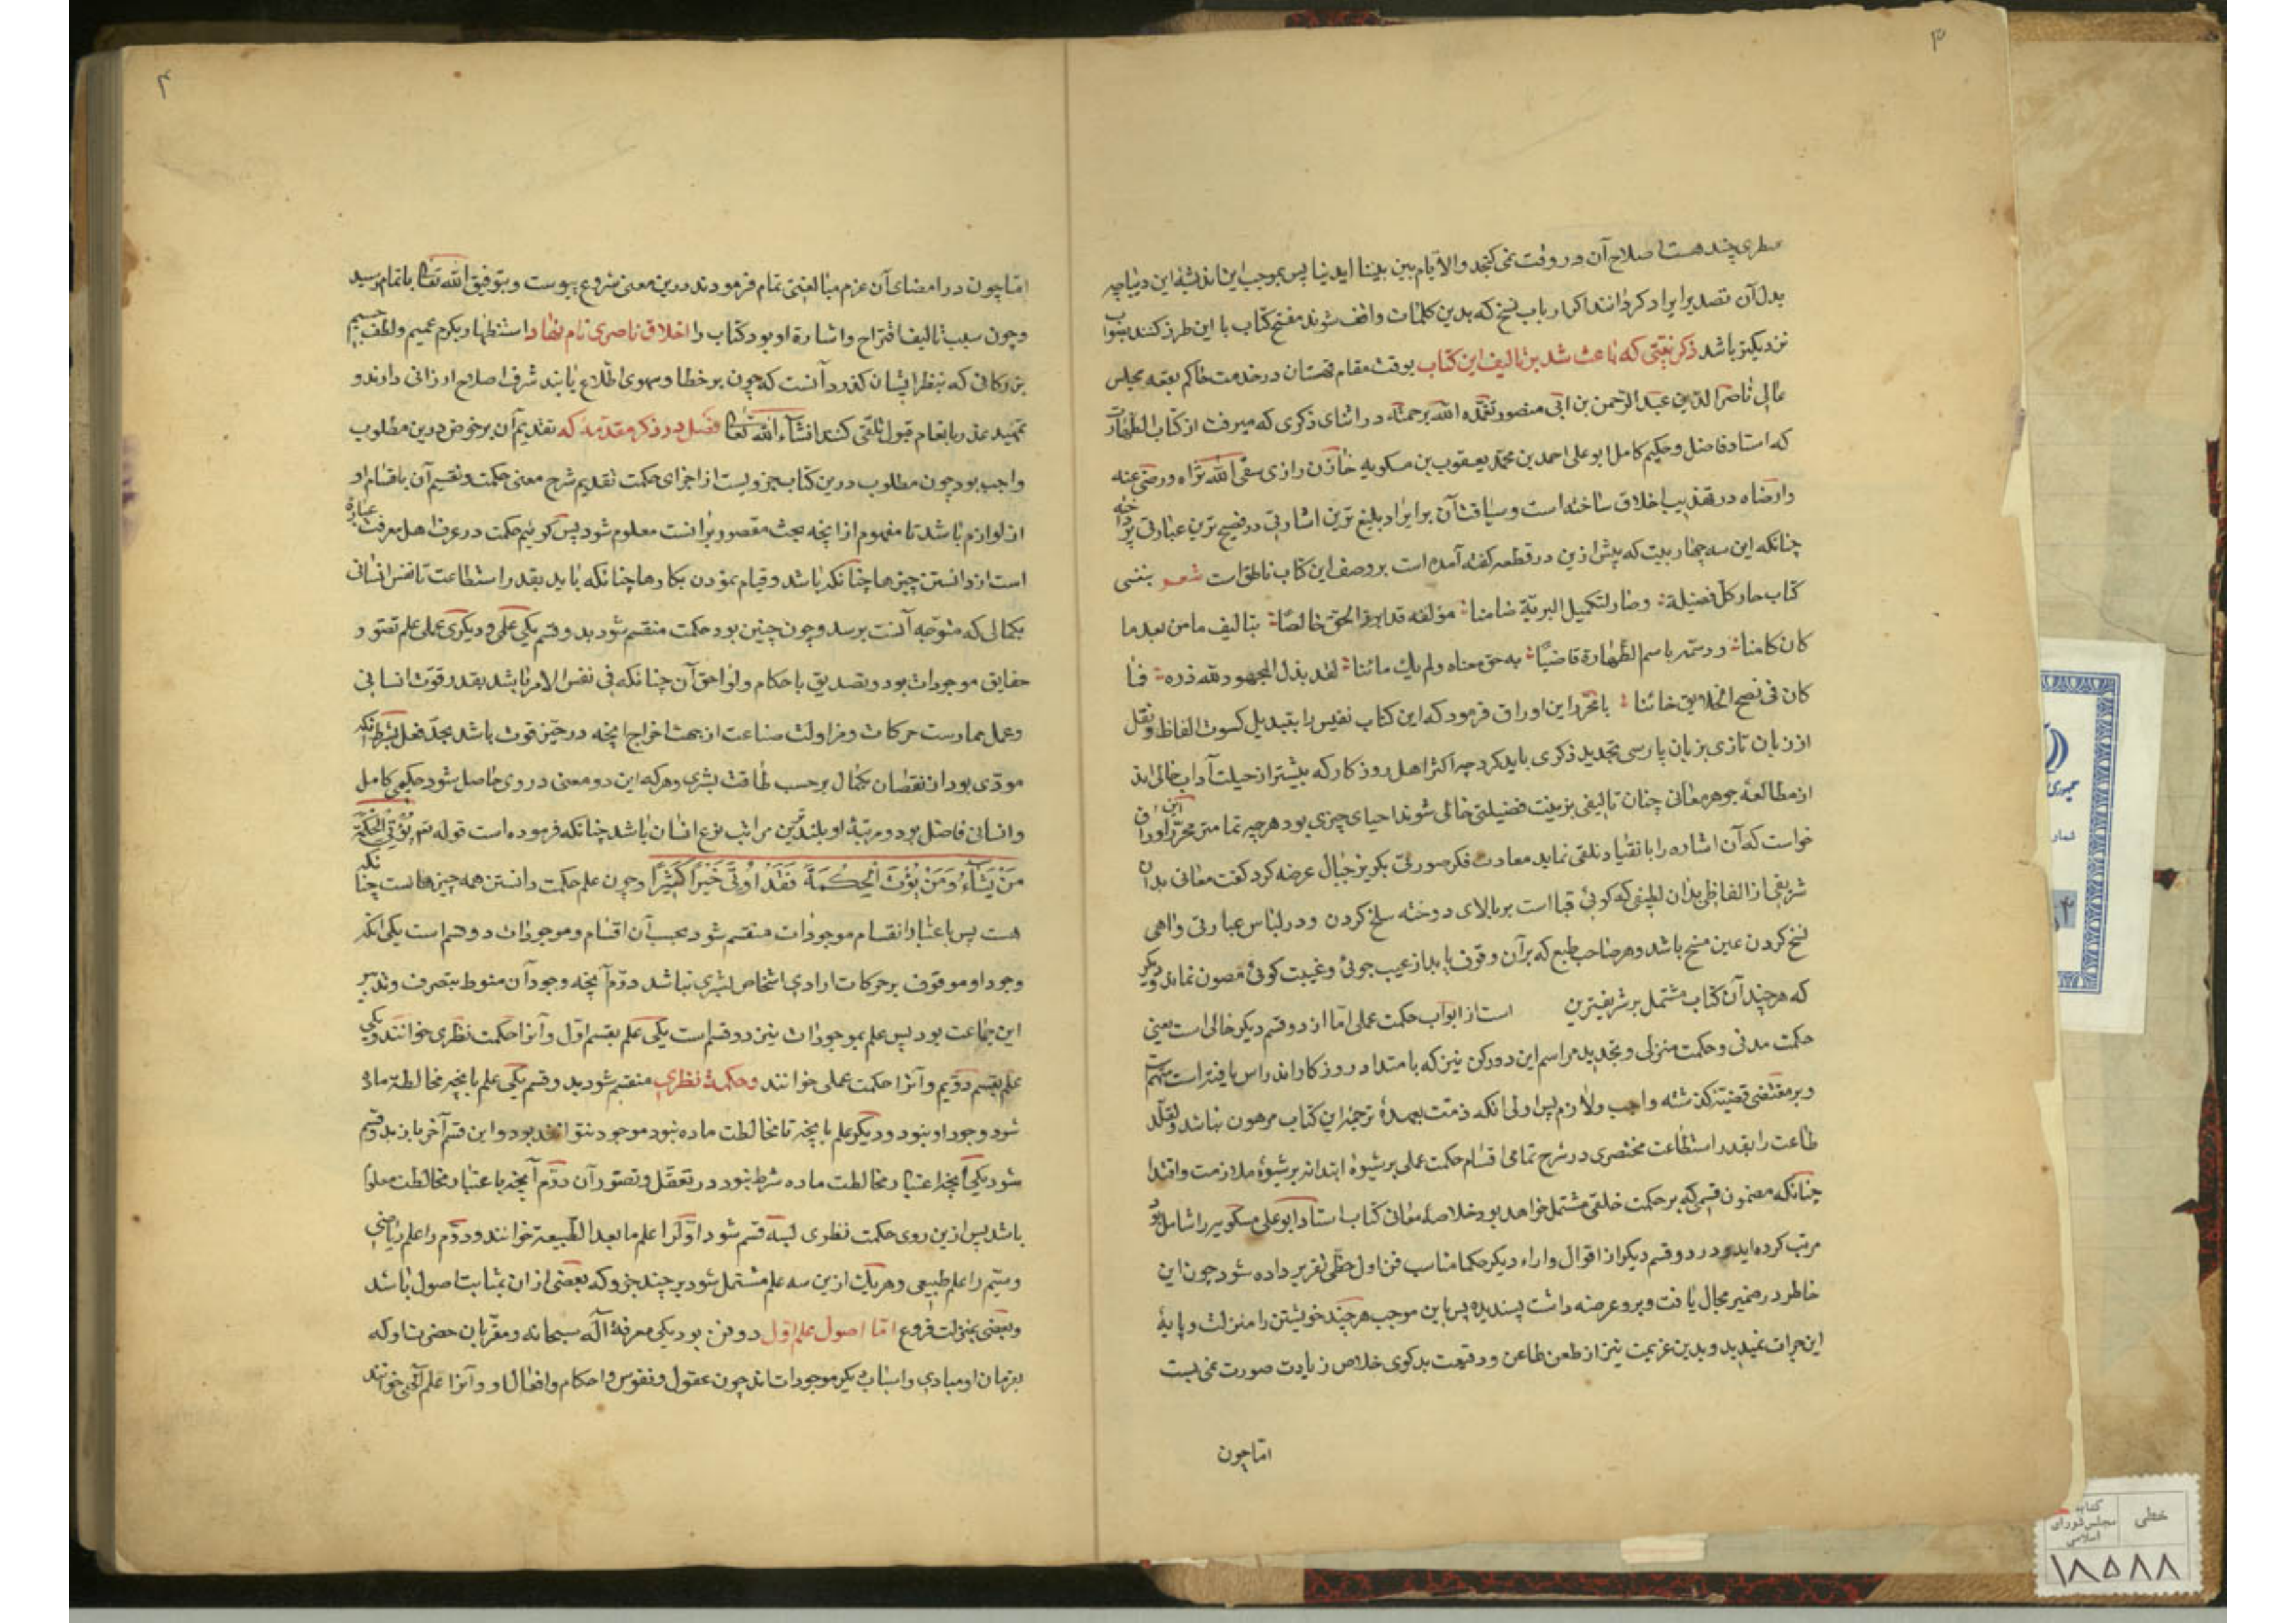 ۳
سطری چند هست اصلاح آن در وقت نمی کنجد والایام بین بیننا ایدینا پس بموجب این اندیشه این دیباچه
بدل آن تصدیر ایراد کردانند اکر ارباب نسخ که بدین کلمات واقف شوند مفتح کتاب با این طرز کنند بصواب
نزدیکتر باشد ذکر نعتی که باعث شد بر تالیف این کتاب بوقت مقام قهستان در خدمت حاکم بقعه مجلس
عالی ناصر الدین عبد الرحمن بن ابی منصور تغمده الله برحمته در اثنای ذکری که میرفت از کتاب الطهارة
که استاد فاضل و حکیم کامل ابو علی احمد بن محمد یعقوب بن مسکویه خازن رازی سقی الله ثراه و رضی عنه
وارضاه در تهذیب اخلاق ساخته است و سیاقت آن بر ایراد بلیغ ترین اشارتی در فصیح ترین عبارتی پرداخته
چنانکه این سه چهار بیت که پیش ازین در قطعه کفته آمده است بر وصف این کتاب ناطق است شعر بنفسی
کتاب حاز کل فضیلة وصار لتکمیل البریة ضامنا مؤلفه قد ابرز الحق خالصا بتالیف ما من بعد ما
کان کامنا ووسمه باسم الطهارة قاضیا به حق معناه ولم یک مائنا لقد بذل المجهود لله دره فما
کان فی نصح الخلایق خائنا با محرر این اوراق فرمود که این کتاب نفیس را بتبدیل کسوت الفاظ و نقل
از زبان تازی بزبان پارسی تجدید ذکری باید کرد چه اکثر اهل روزکار که بیشتر از حیلت آداب خالی اند
از مطالعهٔ جوهر معانی چنان تالیفی بزینت فضیلتی حالی شوند احیای چیزی بود هرچه تمامتر محرر این اوراق
خواست که آن اشاره را بانقیاد تلقی نماید معاودت فکر صورتی بکر بر خیال عرضه کرد کفت معانی بدان
شریفی از الفاظی بدان لطیفی که کوئی قبا است بر بالای دوخته سلخ کردن و در لباس عبارتی واهی
نسخ کردن عین مسخ باشد و هر صاحب طبع که بر آن وقوف یابد از عیب جوئی و غیبت کوئی مصون نماند و دیکر
که هرچند آن کتاب مشتمل بر شریفترین است از ابواب حکمت عملی اما از دو قسم دیکر خالی است یعنی
حکمت مدنی و حکمت منزلی و تجدید مراسم این دو رکن نیز که بامتداد روزکار اندراس یافته است مهم است
و بر مقتضی قضیتهٔ کذشته واجب و لازم پس اولی انکه ذمت بعهدهٔ ترجمهٔ این کتاب مرهون نباشد و تقلد
طاعت را بقدر استطاعت مختصری در شرح تمامی اقسام حکمت عملی بر شیوهٔ ابتدا نه بر شیوهٔ ملازمت و اقتدا
چنانکه مضمون قسمی که بر حکمت خلقی مشتمل خواهد بود خلاصهٔ معانی کتاب استاد ابو علی مسکویه را شامل بود
مرتب کرده اید و در دو قسم دیکر از اقوال و اراء دیکر حکما مناسب فن اول حظی تقریر داده شود چون این
خاطر در ضمیر مجال یافت و برو عرضه داشت پسندیده پس باین موجب هرچند خویشتن را منزلت و پایهٔ
این جرات نمیدید و بدین عزیمت نیز از طعن طاعن و وقیعت بدکوی خلاص زیادت صورت نمی بست
اما چون
۴
اما چون در امضای آن عزم مبالغتی تمام فرمودند درین معنی شروع پیوست و بتوفیق الله تعالی باتمام رسید
و چون سبب تالیف اقتراح و اشارهٔ او بود کتاب را اخلاق ناصری نام نهاد و استظهار بکرم عمیم و لطف جسیم
بزرکانی که بنظر ایشان کذرد آنست که چون بر خطا و سهوی اطلاع یابند شرف اصلاح ارزانی دارند و
تمهید عذر بانعام قبول تلقی کنند انشاء الله تعالی فصل در ذکر مقدمه که تقدیم آن بر خوض درین مطلوب
واجب بود چون مطلوب درین کتاب جزویست از اجزای حکمت تقدیم شرح معنی حکمت و تقسیم آن باقسام او
از لوازم باشد تا مفهوم از انچه بحث مقصور برانست معلوم شود پس کوئیم حکمت در عرف اهل معرفت عبارة
است از دانستن چیزها چنانکه باشد و قیام نمودن بکارها چنانکه باید بقدر استطاعت تا نفس انسانی
بکمالی که متوجه آنست برسد و چون چنین بود حکمت منقسم شود بدو قسم یکی علمی و دیکری عملی علم تصور
حقایق موجودات بود و تصدیق باحکام و لواحق آن چنانکه فی نفس الامر باشد بقدر قوت انسانی
و عمل ممارست حرکات و مزاولت صناعت از جهت اخراج انچه در حیز قوت باشد بحد فعل بشرط انکه
مؤدی بود از نقصان بکمال بر حسب طاقت بشری و هرکه این دو معنی در وی حاصل شود حکیمی کامل
و انسانی فاضل بود و مرتبهٔ او بلندترین مراتب نوع انسان باشد چنانکه فرموده است قوله تع یؤتی الحکمة
مَنْ یَشَاءُ وَمَنْ یُؤْتَ الْحِکْمَةَ فَقَدْ اُوتِیَ خَیْرًا کَثِیرًا و چون علم حکمت دانستن همه چیزها است چنانکه
هست پس باعتبار انقسام موجودات منقسم شود بحسب آن اقسام و موجودات دو قسم است یکی انکه
وجود او موقوف بر حرکات ارادی اشخاص بشری نباشد دوم آنچه وجود آن منوط بتصرف و تدبیر
این جماعت بود پس علم بموجودات نیز دو قسم است یکی علم بقسم اول و آنرا حکمت نظری خوانند و یکی
علم بقسم دویم و آنرا حکمت عملی خوانند و حکمة نظری منقسم شود بدو قسم یکی علم بانچه مخالطهٔ ماده
شود وجود او بنود و دیکر علم بانچه تا مخالطت ماده نبود موجود نتواند بود و این قسم آخر باز بدو قسم
شود یکی آنچه اعتبار مخالطت ماده شرط نبود در تعقل و تصور آن دوم آنچه باعتبار مخالطت معلوم
باشد پس ازین روی حکمت نظری بسه قسم شود اول را علم ما بعد الطبیعة خوانند و دوم را علم ریاضی
و سیم را علم طبیعی و هر یک ازین سه علم مشتمل شود بر چند جزو که بعضی از ان بمثابت اصول باشد
و بعضی بمنزلت فروع اما اصول علم اول دو فن بود یکی معرفة آله سبحانه و مقربان حضرت او که
بفرمان او مبادی و اسباب دیکر موجودات اند چون عقول و نفوس و احکام و افعال او و آنرا علم آلهی خوانند
جمهوری
شمار
خطی
کتابخ
مجلس شورای
اسلامی
۱۸۵۸۸